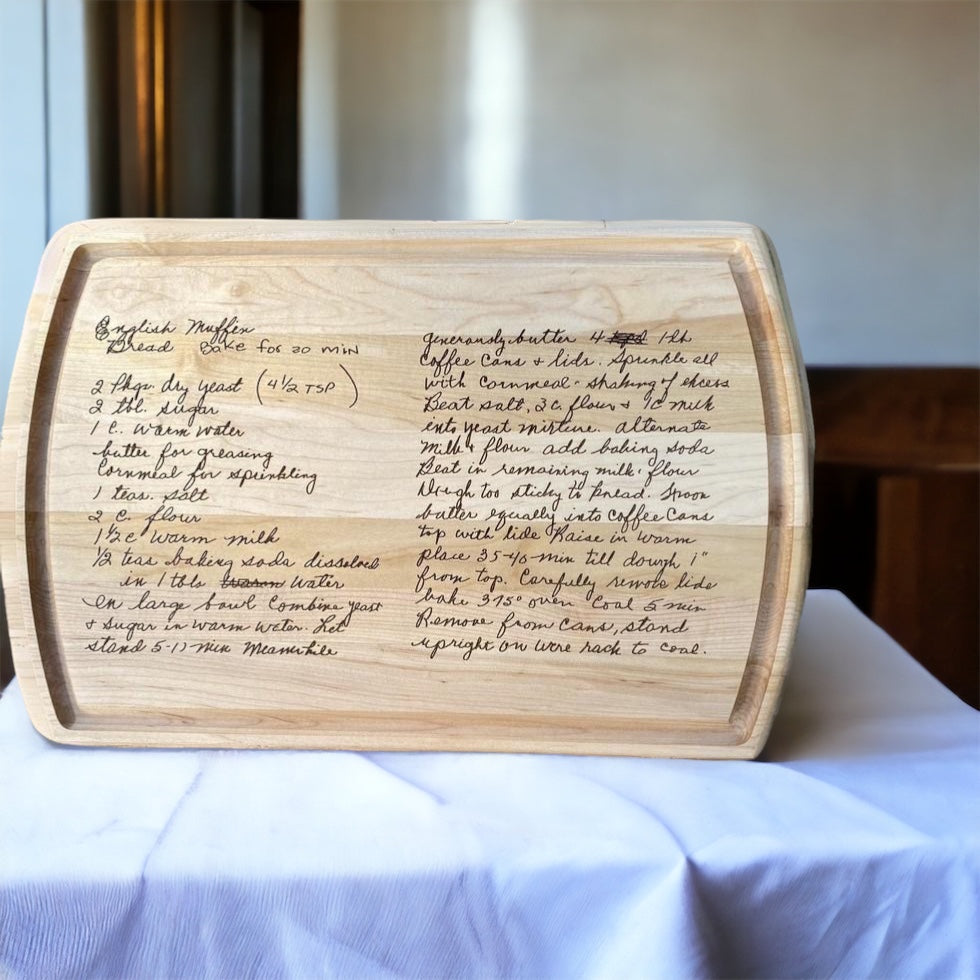 English Muffin
Bread Bake for 20 min
2 Pkgs. dry yeast (4 1/2 TSP)
2 tbl. sugar
1 c. warm water
butter for greasing
Cornmeal for sprinkling
1 teas. salt
2 c. flour
1 1/2 c warm milk
1/2 teas baking soda dissolved
in 1 tbls water
in large bowl combine yeast
& sugar in warm water. Let
stand 5-10 min Meanwhile
generously butter 4 1 lb
coffee cans & lids. Sprinkle all
with cornmeal - shaking off excess
Beat salt, 3 c. flour & 1 c milk
into yeast mixture. alternate
milk & flour add baking soda
Beat in remaining milk & flour
Dough too sticky to knead. Spoon
batter equally into coffee cans
top with lids Raise in warm
place 35-40 min till dough 1"
from top. Carefully remove lids
bake 375° oven Cool 5 min
Remove from cans, stand
upright on wire rack to cool.